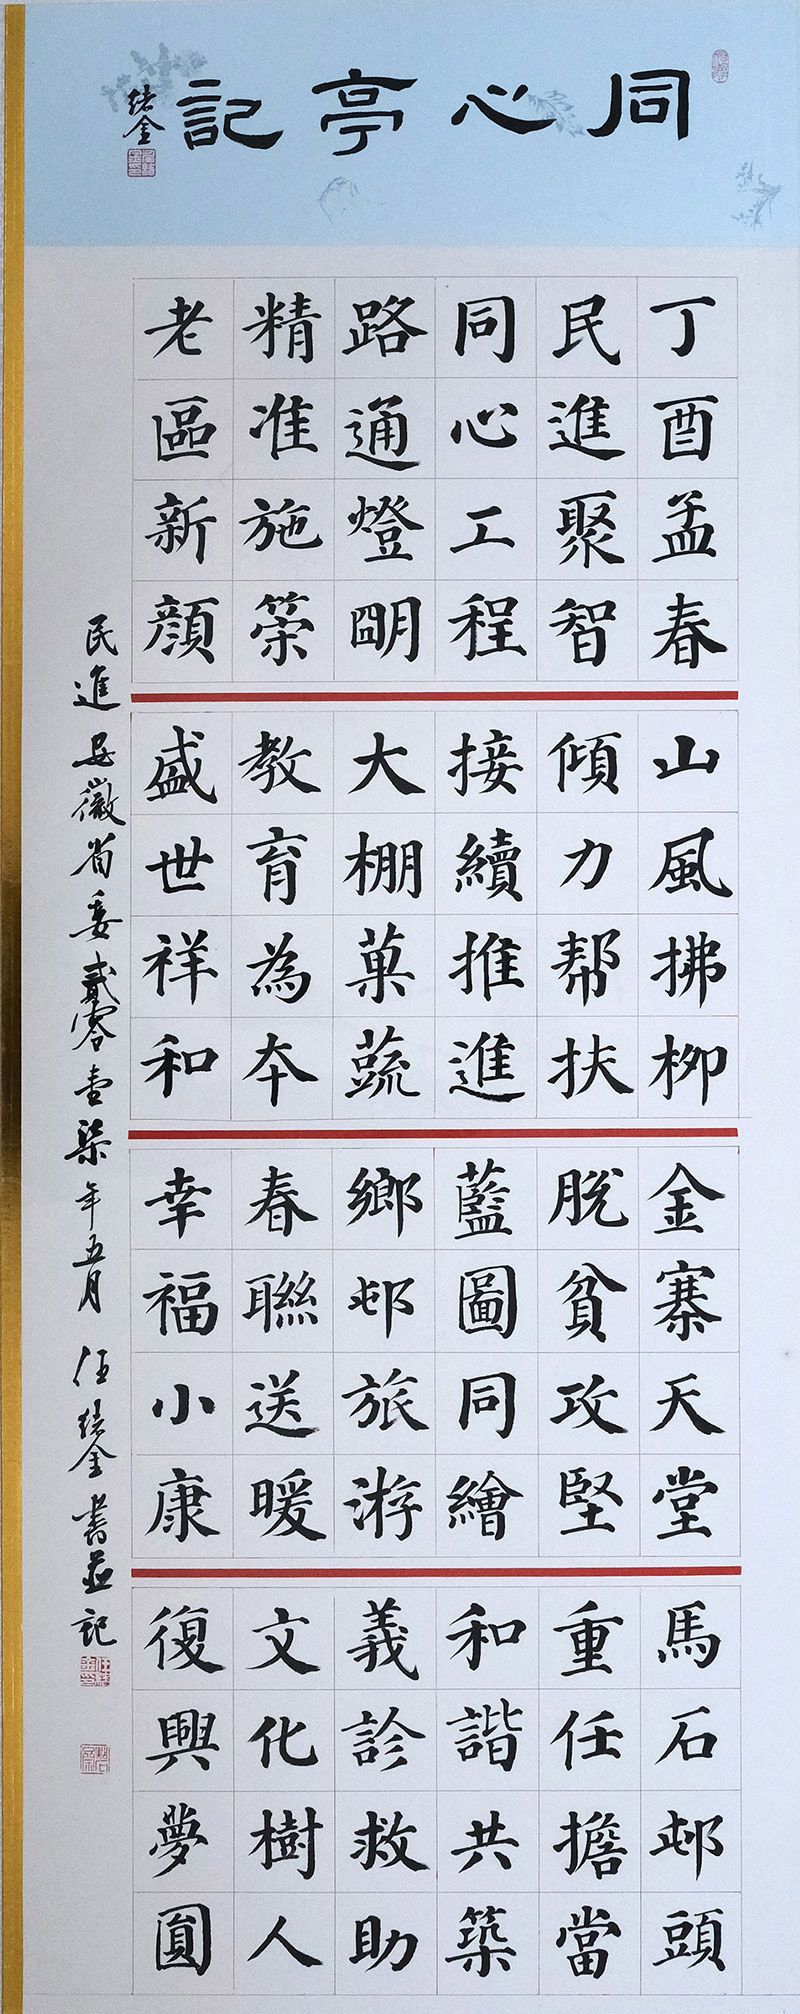 同心亭記
丁酉孟春山風拂柳金寨天堂馬石邨頭
民進聚智傾力帮扶脫貧攻堅重任擔當
同心工程接續推進藍圖同繪和諧共築
路通燈朙大棚菓蔬鄉邨旅游義診救助
精准施策教育為本春聯送暖文化樹人
老區新顔盛世祥和幸福小康復興夢圓
民進安徽省委貳零壹柒年五月 書並記